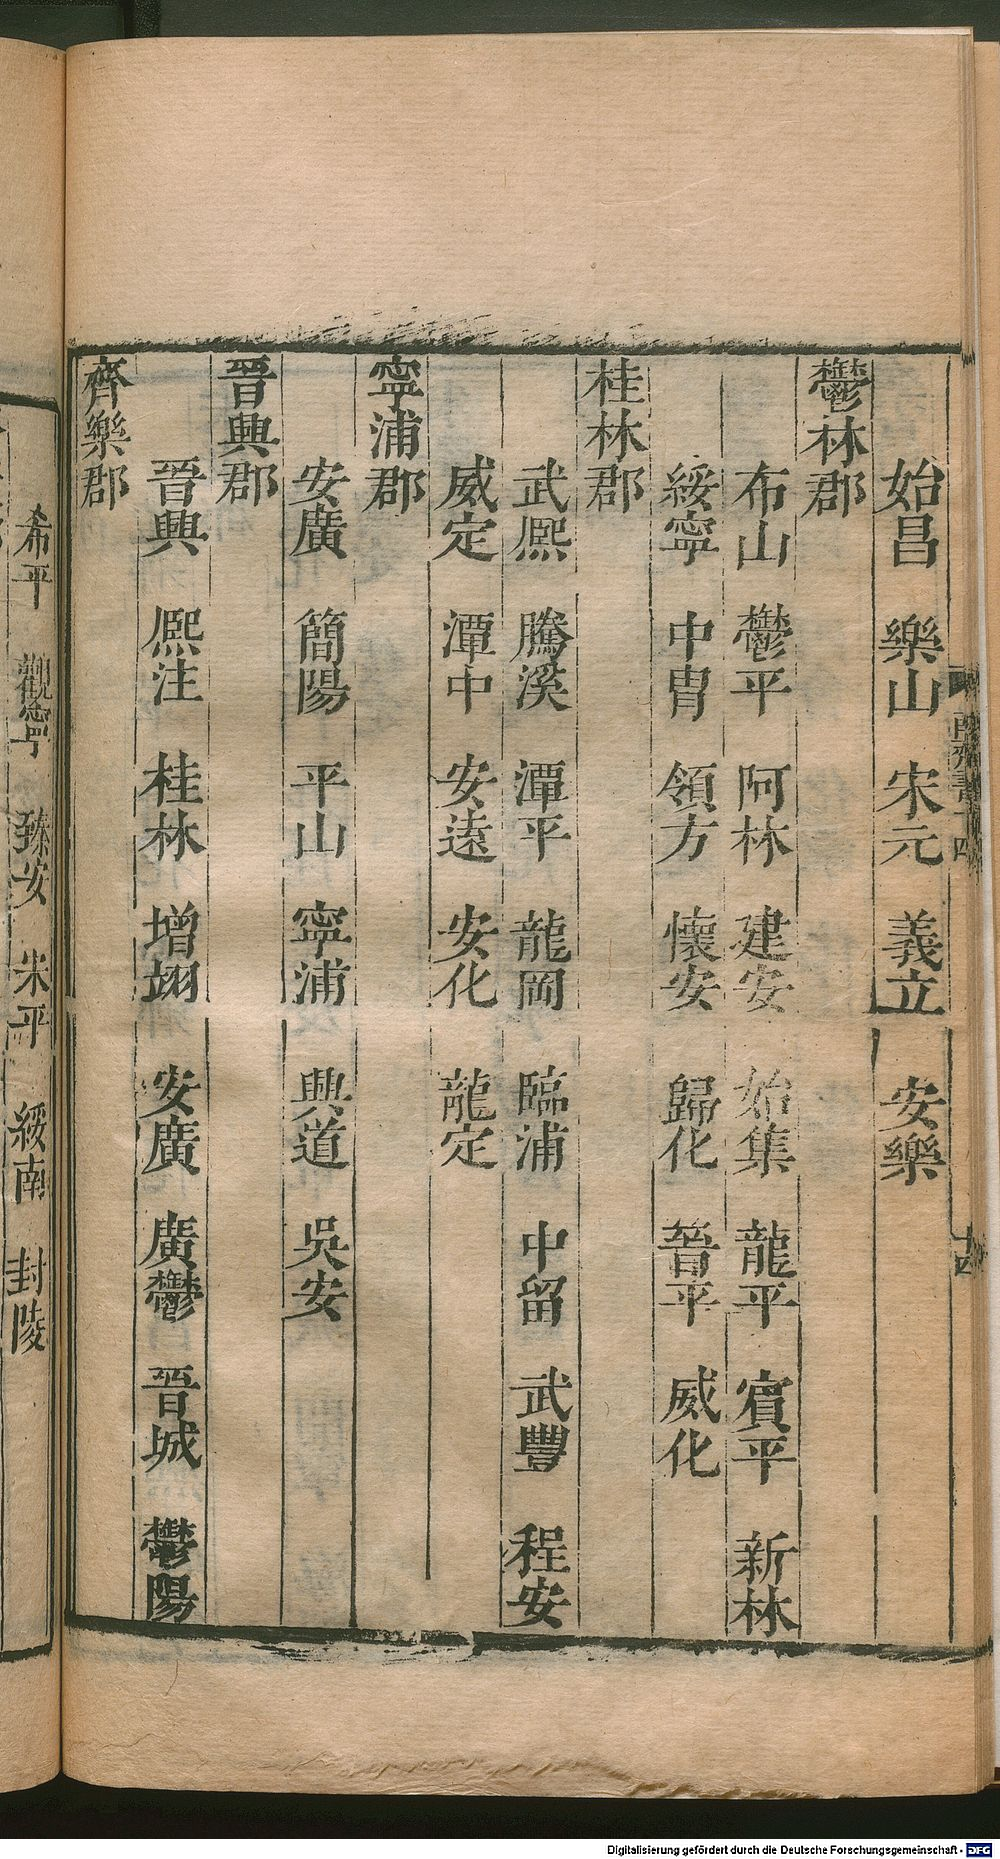 始昌 樂山 宋元 義立 安樂
鬱林郡
布山 鬱平 阿林 建安 始集 龍平 賓平 新林
綏寧 中胄 領方 懷安 歸化 晉平 威化
桂林郡
武熙 騰溪 潭平 龍岡 臨浦 中留 武豐 程安
威定 潭中 安遠 安化 龍定
寧浦郡
安廣 簡陽 平山 寧浦 興道 吳安
晉興郡
晉興 熙注 桂林 增翊 安廣 廣鬱 晉城 鬱陽
齊樂郡
希平 觀寧 臻安 宋平 綏南 封陵
Digitalisierung gefördert durch die Deutsche Forschungsgemeinschaft - DFG